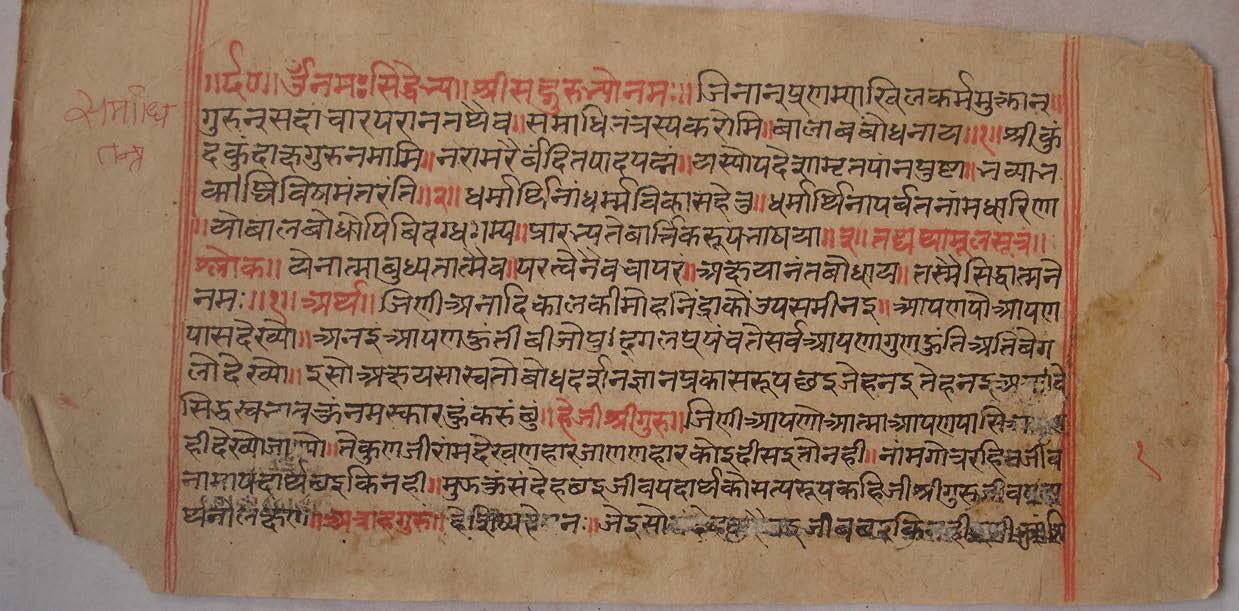 समाधि
तन्त्र
॥र्द०॥ ॐ नमः सिद्धेभ्यः॥ श्रीसद्गुरुभ्यो नमः॥ जिनान् प्रणम्याखिलकर्ममुक्तान्॥
गुरुन् सदाचारपरान तथैव॥ समाधितंत्रस्य करोमि॥ बालावबोधनाय॥१॥ श्रीकुं
दकुंदाह्वगुरुं नमामि॥ नरामरैर्वंदितपादपद्मं॥ यस्योपदेशामृतपानपुष्टा॥ भव्या भ
वाब्धिं विषमं तरंति॥२॥ धर्मार्थिनां धर्म्मविकासहेतु॥ धर्मार्थिना पर्वतनामधारिणा
॥ यो बालबोधोपि विदग्धगम्य॥ प्रारभ्यते वार्त्तिकरूपभाषया॥३॥ तद्यथा मूलसूत्रं॥
श्लोक॥ येनात्माबुध्यतात्मैव॥ परत्वेनैव चापरं॥ अक्षयानंतबोधाय॥ तस्मै सिद्धात्मने
नमः॥१॥ अर्थ॥ जिणी अनादिकालकी मोहनिद्राको उपसमी नइ॥ आपणपौ आपण
पास देख्यौ॥ अनइ आपण हुंती बीजो पुद्गल प्रपंच ते सर्व आपणा गुण हुंति अति वेग
लो देख्यो॥ इसो अक्षय सास्वतो बोध दर्शन ज्ञान प्रकास रूप छइ जेहनइ तेहनइ
सिद्ध नमस्कार हुं करुं छुं॥ हे जी श्रीगुरु॥ जिणी आपणौ आत्मा आपण पासि
ही देख्यो जाण्यो॥ ते कुण जीरांम देखणहार जाणणहार कोइ दीसइ तौ नही॥ नांम गोत्र रहित जीव
नामा पदार्थ छइ कि नही॥ मुझनं संदेह छइ जीव पदार्थ को सत्य रूप कहि जी श्रीगुरु जीव
॥ अत्राह गुरु॥ जीव छइ कि नही
१